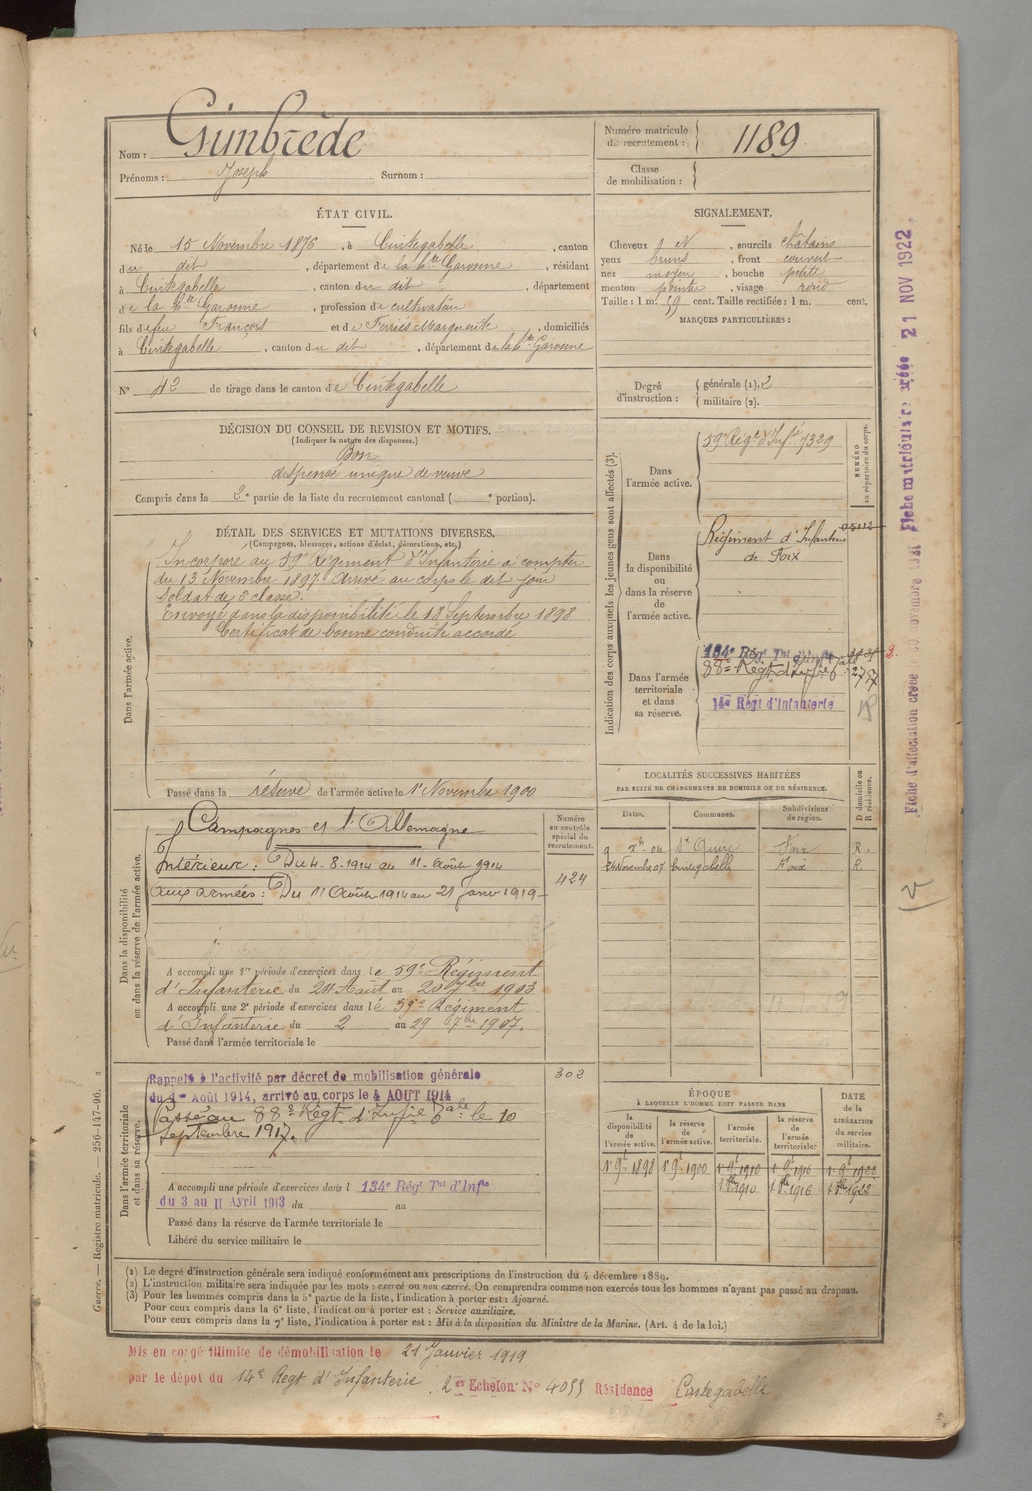 Nom : Gimbrède
Prénoms : Joseph Surnom :
Numéro matricule du recrutement : 1189
Classe de mobilisation :
ÉTAT CIVIL.
Né le 15 Novembre 1876, à Cintegabelle, canton
du dit, département de la Hte Garonne, résidant
à Cintegabelle, canton du dit, département
de la Hte Garonne, profession de cultivateur
fils de feu François et de Ferriès Marguerite, domiciliés
à Cintegabelle, canton du dit, département de la Hte Garonne
N° 42 de tirage dans le canton de Cintegabelle
SIGNALEMENT.
Cheveux et N, sourcils châtains
yeux bruns, front couvert
nez moyen, bouche petite
menton pointu, visage rond
Taille : 1 m. 59 cent. Taille rectifiée : 1 m. cent.
MARQUES PARTICULIÈRES :
Degré d'instruction : générale (1). 2
militaire (2).
DÉCISION DU CONSEIL DE REVISION ET MOTIFS.
(Indiquer la nature des dispenses.)
Bon
dispensé unique de veuve
Compris dans la 2e partie de la liste du recrutement cantonal ( e portion).
DÉTAIL DES SERVICES ET MUTATIONS DIVERSES.
(Campagnes, blessures, actions d'éclat, décorations, etc.)
Dans l'armée active.
Incorporé au 59e Régiment d'Infanterie à compter
du 13 Novembre 1897 Arrivé au corps le dit jour
Soldat de 2e classe.
Envoyé dans la disponibilité le 18 Septembre 1898
Certificat de bonne conduite accordé
Passé dans la réserve de l'armée active le 1er Novembre 1900
Indication des corps auxquels les jeunes gens sont affectés (3).
NUMÉRO au répertoire du corps.
Dans l'armée active.
59e Régt d'Infie 7329
Dans la disponibilité ou dans la réserve de l'armée active.
Régiment d'Infanterie 05112
de Foix
Dans l'armée territoriale et dans sa réserve.
134e Régt Tal d'Infie
88e Régt d'Infie
14e Régt d'Infanterie
Dans la disponibilité ou dans la réserve de l'armée active.
Numéro au contrôle spécial du recrutement.
424
Campagnes et l'Allemagne
Intérieur : Du 4-8-1914 au 11-Août 1914
aux armées : Du 11 Août 1914 au 21 janv 1919
A accompli une 1re période d'exercices dans le 59e Régiment
d'Infanterie du 24 Août au 20 7bre 1903
A accompli une 2e période d'exercices dans le 59e Régiment
d'Infanterie du 2 au 29 7bre 1907.
Passé dans l'armée territoriale le
LOCALITÉS SUCCESSIVES HABITÉES
PAR SUITE DE CHANGEMENTS DE DOMICILE OU DE RÉSIDENCE.
Dates. Communes. Subdivisions de région. D domicile ou R résidence.
St Quirc Foix R.
24 Novembre 07 Cintegabelle Foix R.
Dans l'armée territoriale et dans sa réserve.
302
Rappelé à l'activité par décret de mobilisation générale
du 1er Août 1914, arrivé au corps le 4 AOUT 1914
Passé au 88e Régt d'Infie Tale le 10
Septembre 1917.
A accompli une période d'exercices dans l 134e Rég' Tal d'Infie
du 3 au 11 Avril 1913 du au
Passé dans la réserve de l'armée territoriale le
Libéré du service militaire le
ÉPOQUE
À LAQUELLE L'HOMME DOIT PASSER DANS
DATE de la LIBÉRATION du service militaire.
la disponibilité de l'armée active. la réserve de l'armée active. l'armée territoriale. la réserve de l'armée territoriale.
1er 9bre 1898 1er 9bre 1900 1er 9bre 1910 1er 9bre 1916 1er 9bre 1922
1 8bre 1910 1 8bre 1916 1 8bre 1922
(1) Le degré d'instruction générale sera indiqué conformément aux prescriptions de l'instruction du 4 décembre 1889.
(2) L'instruction militaire sera indiquée par les mots : exercé ou non exercé. On comprendra comme non exercés tous les hommes n'ayant pas passé au drapeau.
(3) Pour les hommes compris dans la 5e partie de la liste, l'indication à porter est : Ajourné.
Pour ceux compris dans la 6e liste, l'indication à porter est : Service auxiliaire.
Pour ceux compris dans la 7e liste, l'indication à porter est : Mis à la disposition du Ministre de la Marine. (Art. 4 de la loi.)
Guerre. — Registre matricule. — 256-147-96.
Mis en congé illimité de démobilisation le 21 Janvier 1919
par le dépot du 14e Régt d'Infanterie. 2e Echelon N° 4055 Résidence Cintegabelle
Fiche matriculaire créée 21 NOV 1922